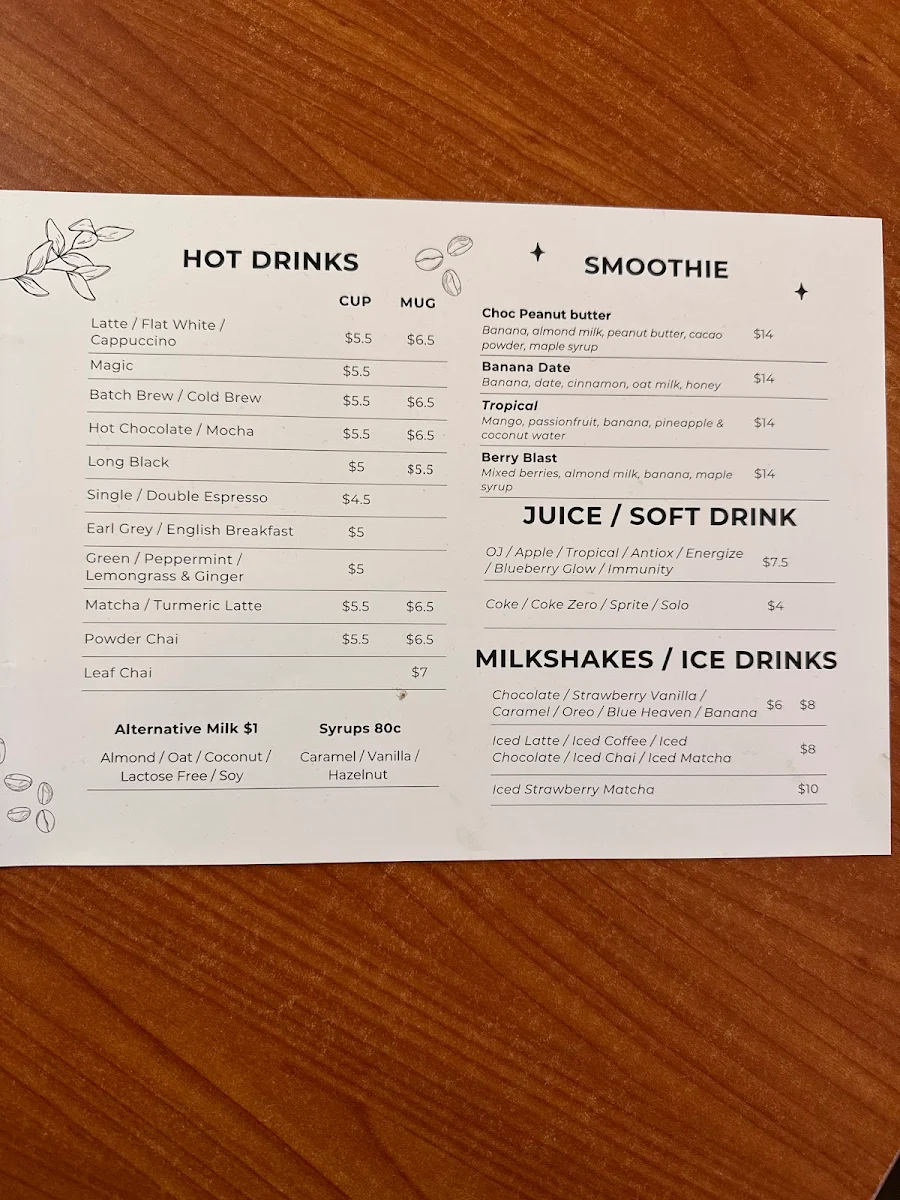 HOT DRINKS
CUP MUG
Latte / Flat White /
Cappuccino $5.5 $6.5
Magic $5.5
Batch Brew / Cold Brew $5.5 $6.5
Hot Chocolate / Mocha $5.5 $6.5
Long Black $5 $5.5
Single / Double Espresso $4.5
Earl Grey / English Breakfast $5
Green / Peppermint /
Lemongrass & Ginger $5
Matcha / Turmeric Latte $5.5 $6.5
Powder Chai $5.5 $6.5
Leaf Chai $7
Alternative Milk $1
Almond / Oat / Coconut /
Lactose Free / Soy
Syrups 80c
Caramel / Vanilla /
Hazelnut
SMOOTHIE
Choc Peanut butter
Banana, almond milk, peanut butter, cacao $14
powder, maple syrup
Banana Date
Banana, date, cinnamon, oat milk, honey $14
Tropical
Mango, passionfruit, banana, pineapple & $14
coconut water
Berry Blast
Mixed berries, almond milk, banana, maple $14
syrup
JUICE / SOFT DRINK
OJ / Apple / Tropical / Antiox / Energize
/ Blueberry Glow / Immunity $7.5
Coke / Coke Zero / Sprite / Solo $4
MILKSHAKES / ICE DRINKS
Chocolate / Strawberry Vanilla /
Caramel / Oreo / Blue Heaven / Banana $6 $8
Iced Latte / Iced Coffee / Iced
Chocolate / Iced Chai / Iced Matcha $8
Iced Strawberry Matcha $10